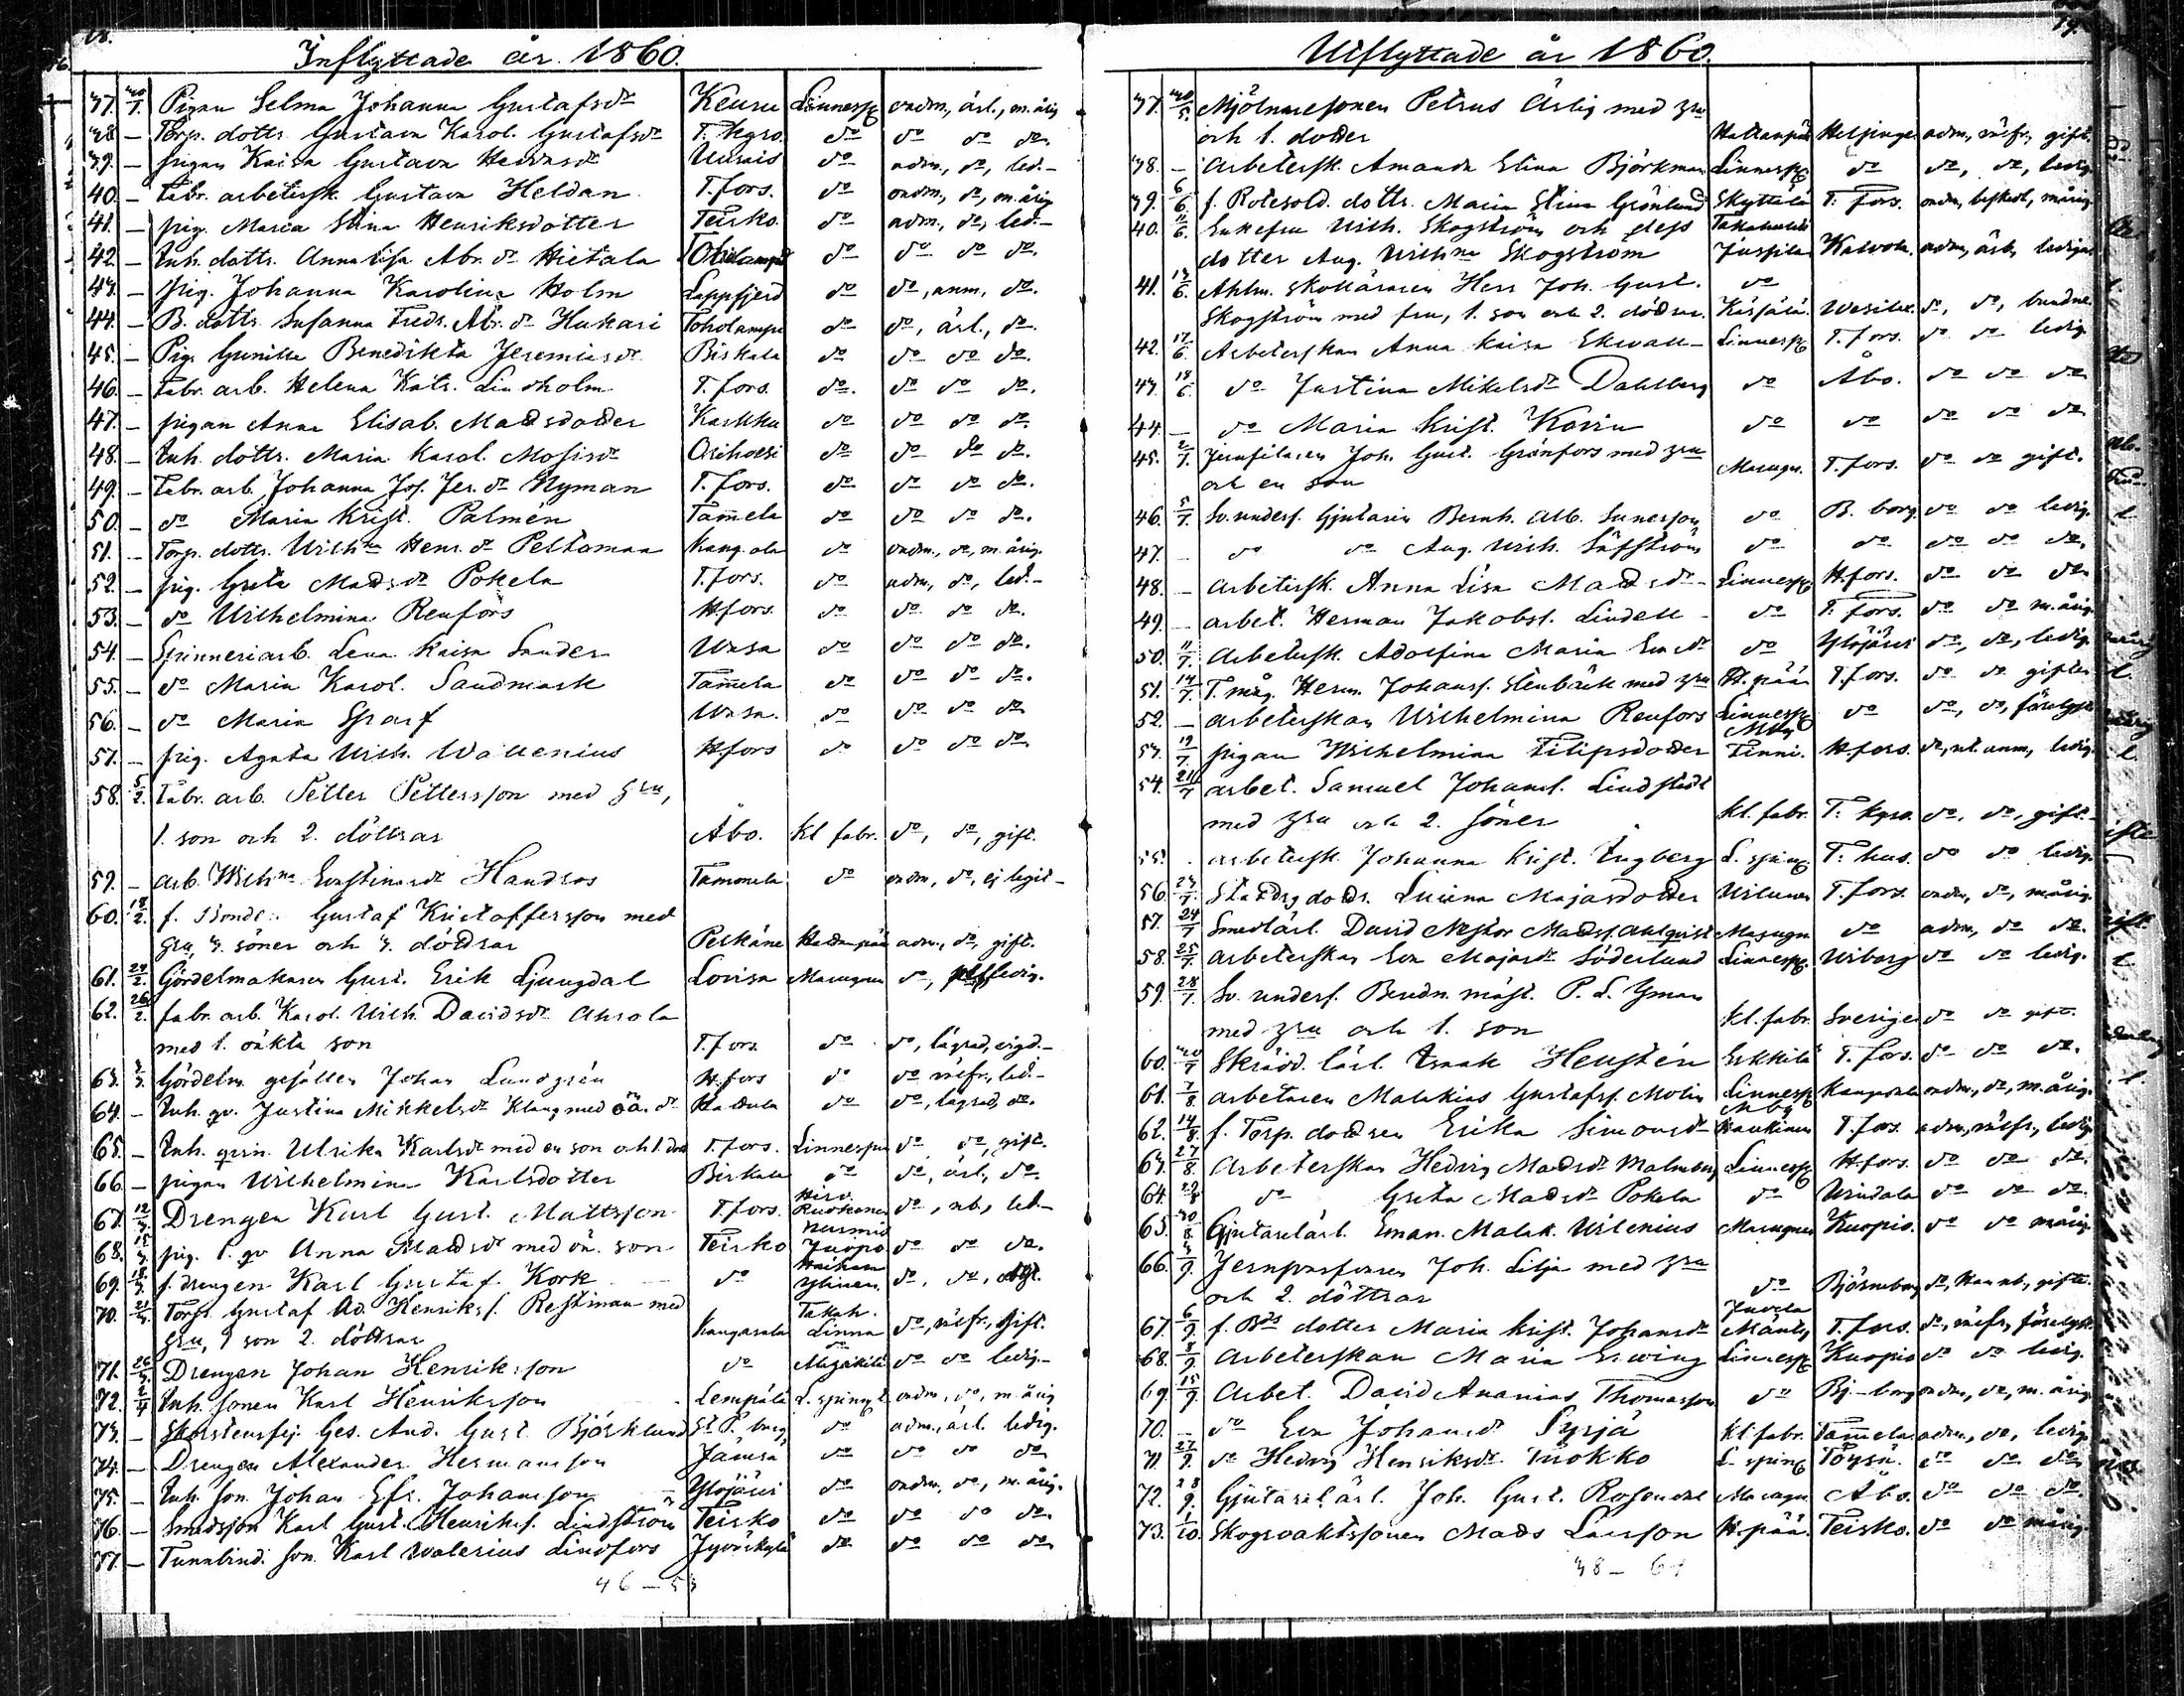 18.
Inflyttade år 1860.
37. 30/1. Pigan Selma Johanna Gustafsdr Keuru Linnesp. ondm., ärl., m.årig
38 — Torp. dottr. Gustava Karol. Gustafsdr T. kyro. do do do do.
39. — pigan Kaisa Gustava Hedvasdr do adm., do, led.—
40. — Fabr. arbetersk. Gustava Heldan T.fors. do ondm., do, m.årig
41. — pig. Maria Stina Henriksdotter Teisko do adm., do, led.—
42. — Inh. dottr. Anna Lisa Abr.dr Hietala do do do do.
43. — pig. Johanna Karolina Holm Lappfjerd do do, anm., do.
44. — B. dottr. Susanna Fredr. Abr. dr Hukari Toholampi do do, ärl., do.
45. — Pig. Gunilla Benedikta Jeremiasdr Birkala do do do do.
46. — Fabr. arb. Helena Katr. Lindholm T.fors. do. do do do.
47. — pigan Anna Elisab. Madsdotter Karkku do do do do.
48. — Inh. dottr. Maria Karol. Mosisdr Orihvesi do do do do.
49. — Fabr. arb. Johanna Jos. Jer. dr Nyman T.fors. do do do do.
50. — do Maria Krist. Palmén Tam̄ela do do do do.
51. — Torp. dottr. Wilhna Henr. dr Peltomaa Kangasala do ondm., do, m.årig.
52. — pig. Greta Madsdr Pokela T.fors. do adm., do, led.—
53. — do Wilhelmina Renfors H.fors. do do do do.
54. — Spinneriarb. Lena Kaisa Sander Wasa do do do do.
55. — do Maria Karol. Sandmark Tam̄ela do do do do.
56. — do Maria Graf Wasa. do do do do
57. — pig. Agata Wilh. Wallenius H.fors do do do do
58. 5/2. Fabr. arb. Petter Pettersson med hru,
1. son och 2. döttrar Åbo. Kl fabr. do, do, gift.
59. — arb. Wilhna Handros Tammela do ondm., do, ej legit—
60. 18/2. f. Bonde Gustaf Kristoffersson med
hru, 3. söner och 3. döttrar Pelkäne adm., do, gift.
61. 24/2. Gördelmakaren Gust. Erik Ljungdal Lovisa Masugnen do, ledig.
62. 26/2. fabr. arb. Karol. Wilh. Davidsdr Ahrola
med 1. oäkta son T.fors do do, lägrad, eigd.—
63. 3/3. Gördelm. gesällen Johan Lundgrén H.fors do do näfr., led.—
64. — Inh. qv. Justina Mikkelsdr Klang med oä. dr do do, lägrad, do.
65. — Inh. qvin. Ulrika Karlsdr med en son och 1. dotr T.fors. Linnespin do do, gift.
66. — pigan Wilhelmina Karlsdotter Birkala do do, ärl., do.
67. 12/3. Drengen Karl Gust. Mattsson T.fors. Ruokonen do, nb., led—
68. 15/3. pig. l. qv Anna Madsdr med oä. son Teisko Nurmis Juopo do do do.
69. 18/3. f. drengen Karl Gustaf Kork do Ylinen do, do,
70. 21/3. Torp. Gustaf Ad. Henrikss. Restiman med
hru, 1 son 2. döttrar Kangasala Takah. Linna do, näfr., gift.
71. 26/3. Drengen Johan Henriksson do do do ledig.—
72. 2/4 Inh. sonen Karl Henriksson Lempälä L. sping ondm, do, m.årig
73. — Skorstensfej. Ges. And. Gust. Björklund St P. burg do adm., ärl. ledig.
74. — Drengen Alexander Hermansson Jämsä do do do do
75. — Inh. son. Johan Efr. Johansson Ylöjärvi do ondm., do, m.årig.
76. — Smedsson Karl Gust. Henrikss. Lindström Teisko do do do do.
77. — Tunnbind. son Karl Walerius Lindfors Jyväskylä do do do do
46 — 53
19.
Utflyttade år 1860.
37. 30/5. Mjölnaresonen Petrus Ärlig med hru
och 1. dotter Hattanpää Helsinge adm., näfr., gift.
38. — Arbetersk. Amanda Elina Björkman Linnesp. do do, do, ledig.
39. 6/6. f. Rotesold. dottr. Maria Stina Grönlund Skyttälä T. fors. ondm, beskedl, m.årig.
40. 11/6. Enkefru Wilh. Skogström och dess Takahuhti
dotter Aug. Wilhna Skogström Jussila Kalvola. adm, ärl, lediga
41. 13/6. Ahlm. skolläraren Herr Joh. Gust. do
Skogström med fru, 1. son och 2. döttrar. Wesilax. do, do, bundne.
42. 17/6. Arbeterskan Anna Kaisa Ekwall— Linnesp. T.fors. do do ledig.
43. 18/6. do Justina Mikelsdr Dahlberg do Åbo. do do do
44. — do Maria Krist. Kovin do do do do do
45. 2/7. Joh. Gust. Grönfors med hru
och en son Masugn. T.fors. do do gift.
46. 5/7. Sv. unders. Gjutaren Bernh. Alb. Sunesson do B. borg. do do ledig.
47. — do do Aug. Wilh. Säfström do do do do do.
48. — arbetersk. Anna Lisa Madsdr— Linnesp. H.fors. do do do
49. — arbet. Herman Jakobss. Lindell — do T. fors. do do m.årig.
50. 11/7. Arbetersk. Adolfina Maria Evasdr do Ylöjärvi do, do, ledig.
51. 14/7. T. måg. Herm. Johanss. Stenbäck med hru H. pää T.fors. do do gifter
52. — arbeterskan Wilhelmina Renfors Linnesp. do do, do,
53. 19/7. pigan Wilhelmina Filipsdotter Finni. H.fors. do, ut anm, ledig.
54. 21/7 arbet. Samuel Johanss. Lindstedt
med hru och 2. söner Kl. fabr. T. kyro. do, do, gift.—
55. . arbetersk. Johanna Krist. Engberg L. spinn. T. hus. do do ledig
56. 23/7. dottr. Lovisa Majasdotter T.fors. ondm., do, m.årig.
57. 24/7 Smedlärl. David Nestor Madss. Ahlqvist Masugn do adm, do do.
58. 25/7. arbeterskan Eva Majasdr Söderlund Linnesp. Wiborg do do ledig.
59. 28/7. Sv. unders. mäst. P. L. Yman
med hru och 1. son Kl. fabr. Sverige do do gift.
60. 30/7 Skrädd. lärl. Isaak Henstén T. fors. do do do.
61. 7/8 arbetaren Malakias Gustafss. Molin Linnesp Kangasala ondm., do, m.årig.
62. 14/8. f. Torp. dottren Erika Simonsdr T.fors. adm, näfr., ledig.
63. 27/8. Arbeterskan Hedvig Madsdr Malmberg Linnesp H.fors. do do do.
64. 29/8 do Greta Madsdr Pokela do Urdiala do do do.
65. 30/8. Gjutarelärl. Eman. Malak. Wilenius Masugnen Kuopio. do do m.årig.
66. 3/9. Joh. Lilja med hru
och 2. döttrar do Björneborg do, nb, gifte.
67. 6/9. f. dotter Maria Krist. Johansdr T.fors. do, näfr,
68. 8/9. Arbeterskan Maria Erwing Linnesp. Kuopio do do ledig.
69. 15/9. Arbet. David Ananias Thomasson do Bj—borg ondm, do, m.årig.
70. — do Eva Johansdr Syrjä Kl. fabr. Tam̄ela adm., do, ledig.
71. 27/9. do Hedvig Henriksdr Tuokko L. sping Töysä. do do do
72. 28/9. Gjutarelärl. Joh. Gust. Rosendal Masugn Åbo. do do do
73. 1/10. Skogsvaktssonen Mads Larsson H.pää. Teisko. do do m.årig.
38 — 61